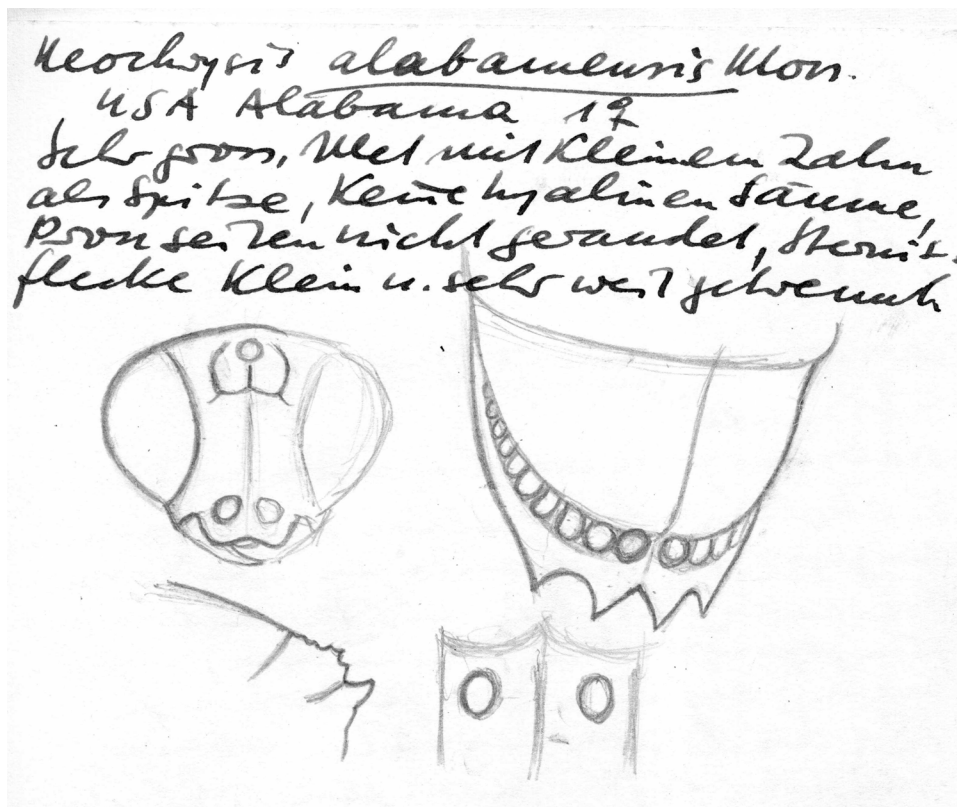 Neochrysis alabamensis Mocs.
USA Alabama 1♀
Sehr gross, Met mit Kleinem Zahn
als Spitze, Keine hyalinen Säume,
Pronseiten nicht gerandet, Sternit-
flecke Klein u. sehr weit getrennt